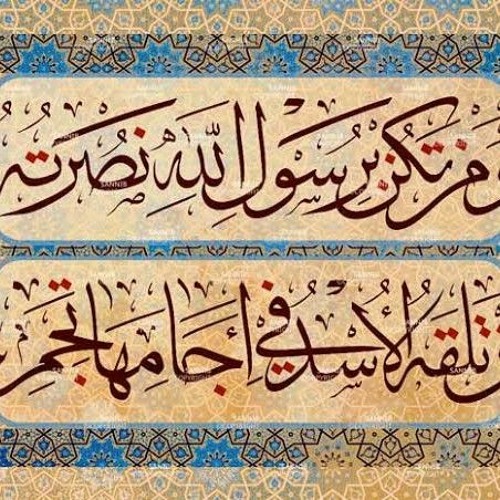 ومن تكن برسول الله نصرته
ن تلقه الأسد في آجامها تجم